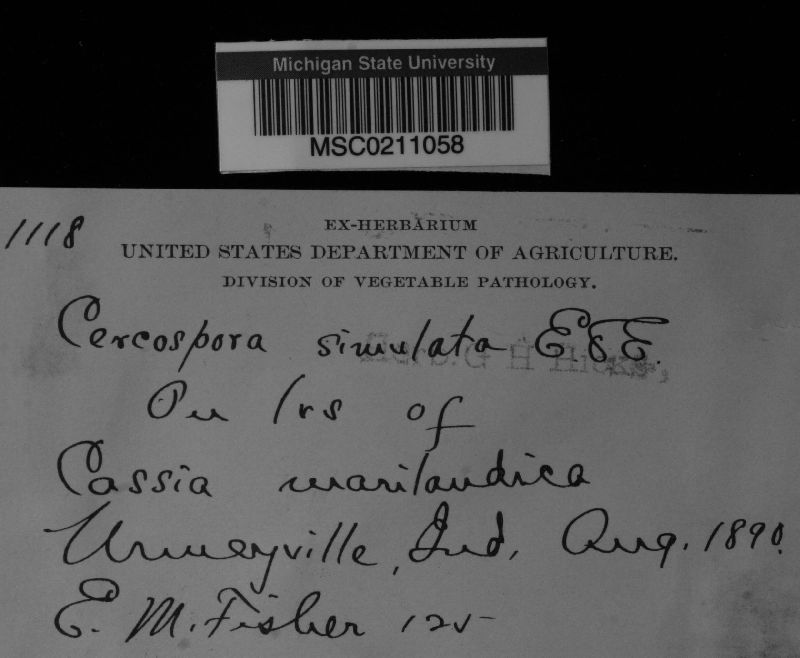 Michigan State University
MSC0211058
1118
EX-HERBARIUM
UNITED STATES DEPARTMENT OF AGRICULTURE.
DIVISION OF VEGETABLE PATHOLOGY.
Cercospora simulata E & E.
Herb. G H Hicks,
On lvs of
Cassia marilandica
Urmeyville, Ind, Aug. 1890.
E. M. Fisher 125